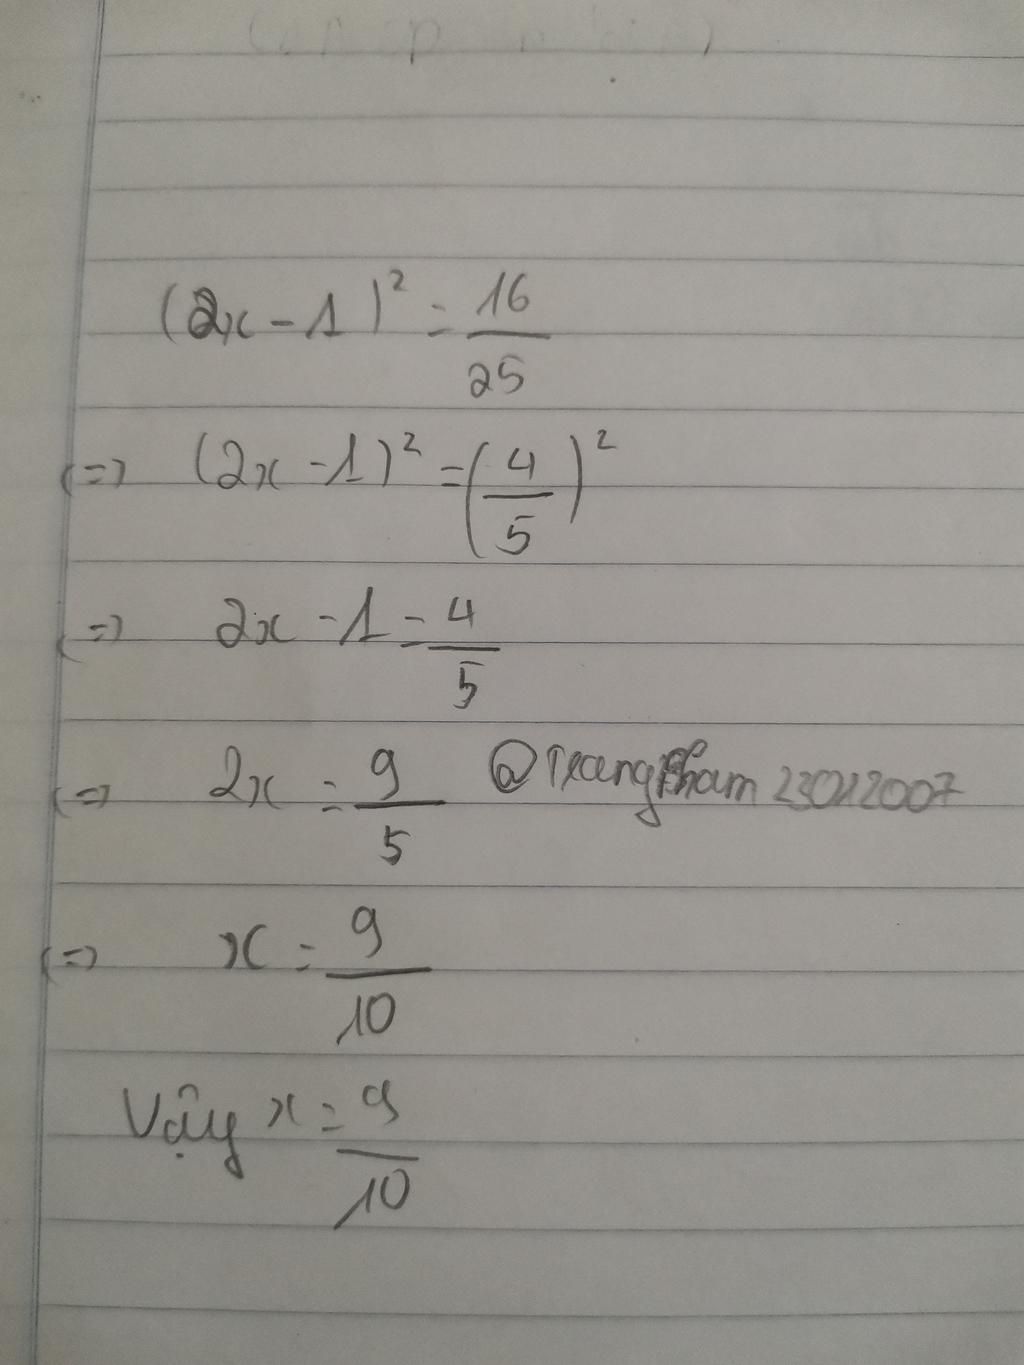 (2x - 1)² = 16/25
(=) (2x - 1)² = (4/5)²
(=) 2x - 1 = 4/5
(=) 2x = 9/5 @TrangPham23012007
(=) x = 9/10
Vậy x = 9/10